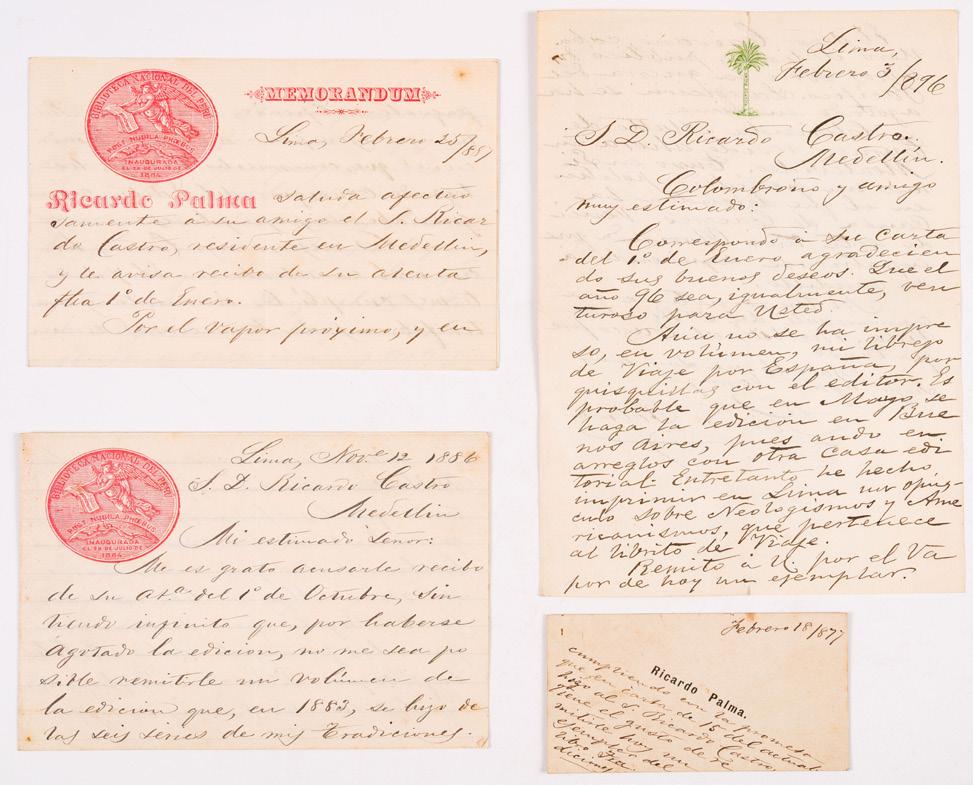 BIBLIOTECA NACIONAL DEL PERU
POST NUBILA PHOEBUS
INAUGURADA
EL 28 DE JULIO DE
1884
MEMORANDUM
Lima, Febrero 25/887
Ricardo Palma saluda afectuo
samente á su amigo el S. Ricar
do Castro, residente en Medellin,
y le avisa recibo de su atenta
fha 1º de Enero.
Por el vapor próximo, y en
BIBLIOTECA NACIONAL DEL PERU
POST NUBILA PHOEBUS
INAUGURADA
EL 28 DE JULIO DE
1884
Lima, Nov.e 12 1886
S. D. Ricardo Castro
Medellin
Mi estimado Señor:
Me es grato acusarle recibo
de su at.a del 1º de Octubre, sin
tiendo infinito que, por haberse
agotado la edicion, no me sea po
sible remitirle un volúmen de
la edicion que, en 1883, se hizo de
las seis séries de mis Tradiciones.
Lima,
Febrero 3/896
S. D. Ricardo Castro.
Medellín.
Colombroño y amigo
muy estimado:
Correspondo á su carta
del 1.º de Enero agradecien
do sus buenos deseos. Que el
año 96 sea, igualmente, ven
turoso para Usted.
Aún no se ha impre
so, en volúmen, mi librejo
de Viaje por España, por
quisquillas con el editor. Es
probable que en Mayo se
haga la edición en Bue
nos Aires, pues ando en
arreglos con otra casa edi
torial. Entretanto he hecho
imprimir en Lima un opús-
culo sobre Neologismos y Ame
ricanismos, que pertenece
al librito de Viaje.
Remito á U. por el Va
por de hoy un ejemplar.
Febrero 18/877
Ricardo Palma.
cumpliendo con la promesa
que en carta de 15 del actual
hizo al S. Ricardo Castro,
tiene el gusto de re
mitirle hoy un
ejemplar del
libro